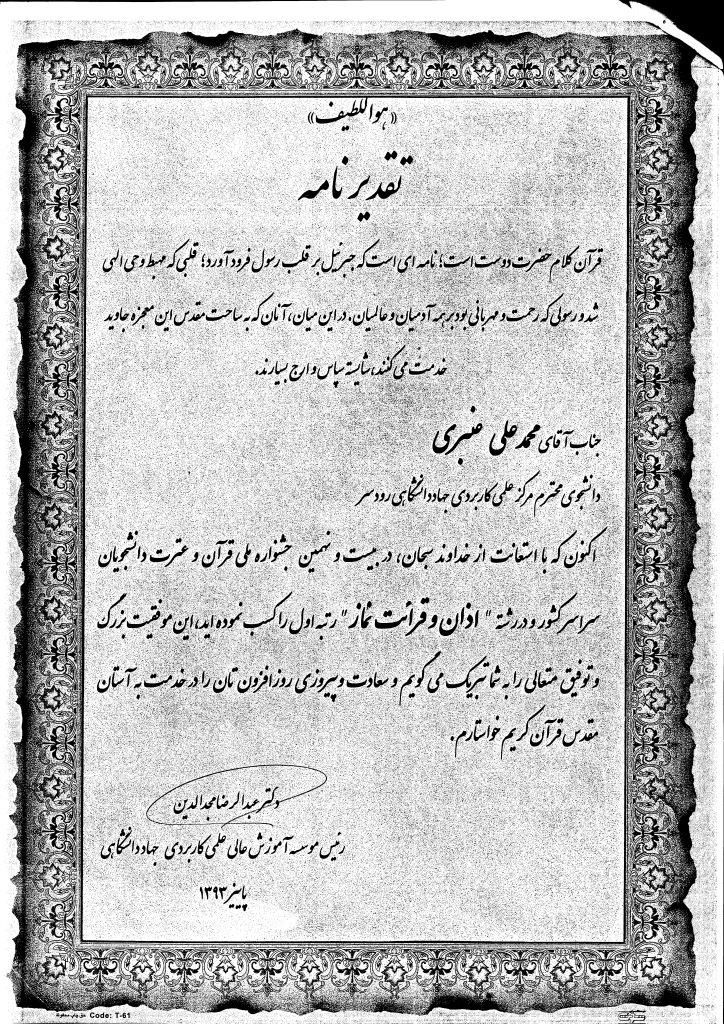 «هواللطیف»
تقدیر نامه
قرآن کلام حضرت دوست است؛ نامه ای است که جبرئیل بر قلب رسول فرود آورد؛ قلبی که مهبط وحی الهی
شد و رسولی که رحمت و مهربانی بود بر همه آدمیان و عالمیان. در این میان، آنان که به ساحت مقدس این معجزه جاوید
خدمت می کنند، شایسته سپاس و ارج بسیارند.
جناب آقای محمد علی عنبری
دانشجوی محترم مرکز علمی کاربردی جهاد دانشگاهی رودسر
اکنون که با استعانت از خداوند سبحان، در بیست و نهمین جشنواره ملی قرآن و عترت دانشجویان
سراسر کشور و در رشته " اذان و قرائت نماز " رتبه اول را کسب نموده اید، این موفقیت بزرگ
و توفیق متعالی را به شما تبریک می گویم و سعادت و پیروزی روزافزون تان را در خدمت به آستان
مقدس قرآن کریم خواستارم.
دکتر عبدالرضا مجدالدین
رئیس موسسه آموزش عالی علمی کاربردی جهاد دانشگاهی
پاییز ۱۳۹۳
Code: T-61 حق چاپ محفوظ